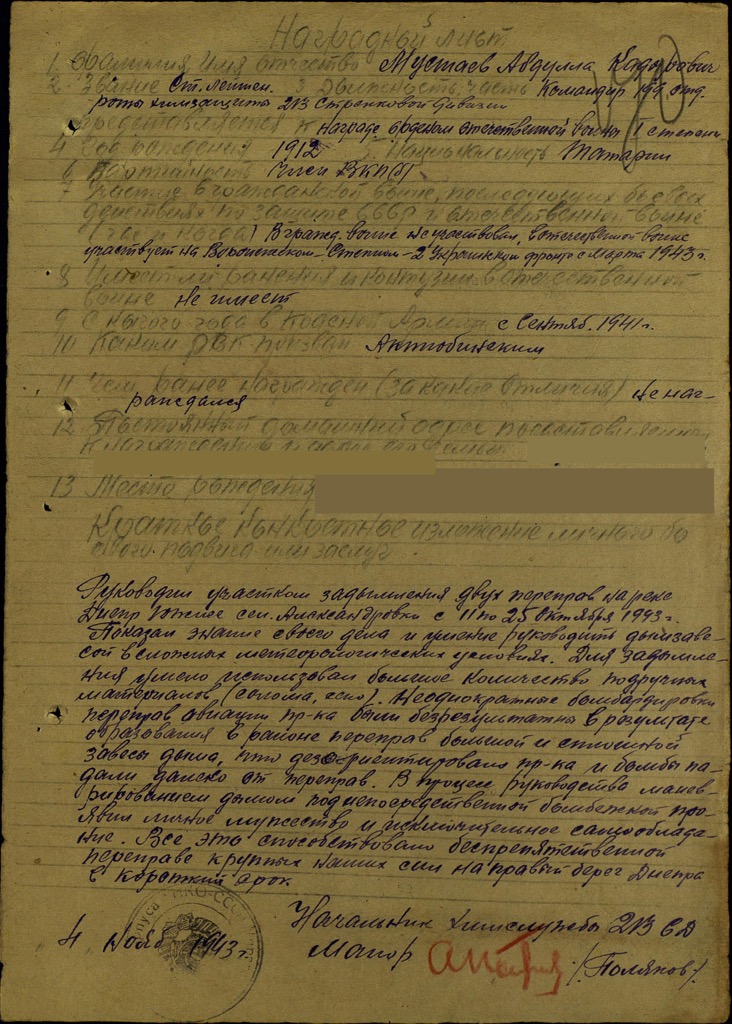 Наградный лист
1 Фамилия Имя отчество Мустаев Абдулла Кадырович
2. Звание Ст. лейтен. 3 Должность, часть Командир 199 отд.
роты химзащиты 213 Стрелковой Дивизии
Представляется к Награде орденом отечественной войны I степени
4 Год рождения 1912 Национальность Татарин
6 Партийность Член ВКП(б)
7 Участие в гражданской войне, последующих боевых
действиях по защите СССР и отечественной войне
(где и когда) В гражд. войне не участвовал, в отечественной войне
участвует на Воронежском-Степном-2 Украинском фронте с Марта 1943 г.
8 Имеет ли ранения и контузии в отечественной
войне не имеет
9 С какого года в Красной Армии с Сентяб. 1941 г.
10 Каким РВК призван Актюбинским
11 Чем ранее награжден (за какие отличия) не наг-
раждался
12 Постоянный домашний адрес представляемого
к награждению и адрес его семьи
13 Место рождения
Краткое конкретное изложение личного бо
евого подвига или заслуг.
Руководил участком задымления двух переправ на реке
Днепр южнее сел. Александровки с 11 по 25 октября 1943 г.
Показал знание своего дела и умение руководить дымзаве-
сой в сложных метеорологических условиях. Для задымле-
ния умело использовал большое количество подручных
материалов (солома, сено). Неоднократные бомбардировки
переправ авиации пр-ка были безрезультатны в результате
образования в районе переправ большой и сплошной
завесы дыма, что дезориентировало пр-ка и бомбы па-
дали далеко от переправ. В процессе руководства манев-
рированием дымом под непосредственной бомбежкой про-
явил личное мужество и исключительное самооблада-
ние. Все это способствовало беспрепятственной
переправе крупных наших сил на правый берег Днепра
в короткий срок
Начальник химслужбы 213 СД
4 Нояб 1943 г. Майор /Поляков/.